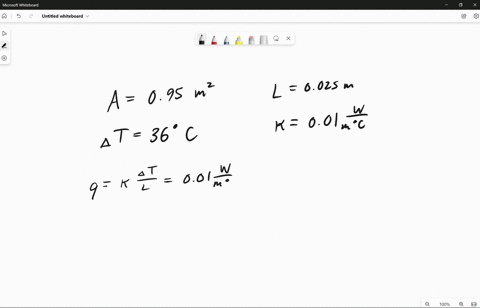 Microsoft Whiteboard
Untitled whiteboard
A = 0.95 m²
L = 0.025 m
ΔT = 36° C
K = 0.01 W/m°C
q = K ΔT/L = 0.01 W/m°
100%